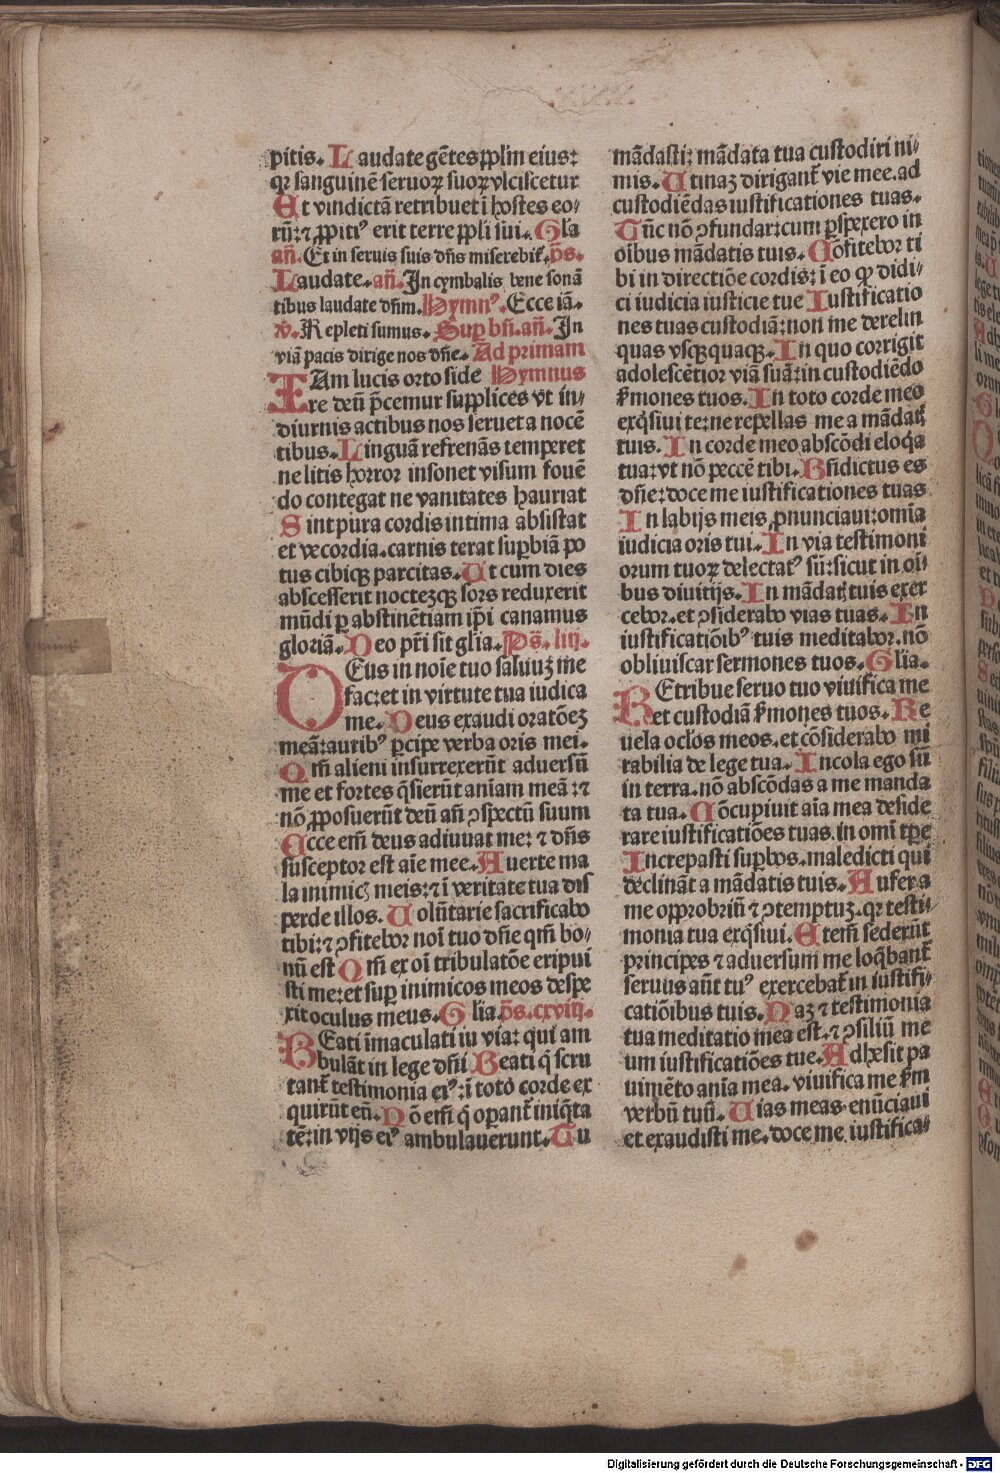 pitis. Laudate gẽtes ꝓplm̃ eius:
qꝛ sanguinẽ seruoꝝ suoꝝ vlciscetur
Et vindictã retribuet ĩ hostes eo⸗
rũ: ⁊ ꝓpitiꝰ erit terre ꝓpli sui. Gl̃a
añ. Et in seruis suis dñs miserebit᷑. p̃s.
Laudate. añ. In cymbalis bene sonã
tibus laudate dñm. Hymnꝰ. Ecce iã.
v̾. Repleti sumus. Suꝑ bñ. añ. In
viã pacis dirige nos dñe. Ad primam
IAm lucis orto side Hymnus
re deũ p̃cemur supplices vt in⸗
diurnis actibus nos seruet a nocẽ
tibus. Linguã refrenãs temperet
ne litis horror insonet visum fouẽ
do contegat ne vanitates hauriat
Sint pura cordis intima absistat
et vecordia. carnis terat suꝑbiã po
tus cibiqꝫ parcitas. Ut cum dies
abscesserit noctezqꝫ sors reduxerit
mũdi ꝑ abstinẽtiam ip̃i canamus
gloriã. Deo pr̃i sit gl̃ia. Ps̃. liij.
DEus in noĩe tuo saluuz me
fac: et in virtute tua iudica
me. Deus exaudi oratõez
meã: auribꝰ ꝑcipe verba oris mei.
Qm̃ alieni insurrexerũt aduersũ
me et fortes q̃sierũt aniam meã: ⁊
nõ ꝓposuerũt deũ añ ꝯspectũ suum
Ecce em̃ deus adiuuat me: ⁊ dñs
susceptor est aĩe mee. Auerte ma
la inimicꝭ meis: ⁊ ĩ veritate tua dis
perde illos. Uolũtarie sacrificabo
tibi: ⁊ ꝯfitebor noĩ tuo dñe qm̃ bo⸗
nũ est Qm̃ ex oĩ tribulatõe eripui
sti me: et suꝑ inimicos meos despe
xit oculus meus. Gl̃ia. p̃s. cxviij.
BEati ĩmaculati iu via: qui am
bulãt in lege dñi Beati q̃ scru
tant᷑ testimonia eiꝰ: ĩ toto corde ex
quirũt eũ. Nõ em̃ q̃ operant᷑ iniq̃ta
tẽ: in vijs eiꝰ ambulauerunt. Tu
mãdasti: mãdata tua custodiri ni⸗
mis. Utinaz dirigant᷑ vie mee. ad
custodiẽdas iustificationes tuas.
Tũc nõ ꝯfundar: cum ꝑspexero in
oĩbus mãdatis tuis. Cõfitebor ti
bi in directiõe cordis: ĩ eo qꝙ didi⸗
ci iudicia iusticie tue Iustificatio
nes tuas custodiã: non me derelin
quas vsqꝫquaqꝫ. In quo corrigit
adolescẽtior viã suã: in custodiẽdo
s̃mones tuos. In toto corde meo
exq̃siui te: ne repellas me a mãdatꝭ
tuis. In corde meo abscõdi eloq̃a
tua: vt nõ peccẽ tibi. Bñdictus es
dñe: doce me iustificationes tuas
In labijs meis ꝓnunciaui: omĩa
iudicia oris tui. In via testimoni
orum tuoꝝ delectatꝰ sũ: sicut in oĩ⸗
bus diuitijs. In mãdatꝭ tuis exer
cebor. et ꝯsiderabo vias tuas. In
iustificatiõibꝰ tuis meditabor. nõ
obliuiscar sermones tuos. Glia.
REtribue seruo tuo viuifica me
et custodiã s̃mones tuos. Re
uela oclõs meos. et cõsiderabo mi
rabilia de lege tua. Incola ego sũ
in terra. nõ abscõdas a me manda
ta tua. Cõcupiuit aĩa mea deside
rare iustificatiões tuas. in omĩ tꝑe
Increpasti suꝑbos. maledicti qui
declinãt a mãdatis tuis. Aufer a
me opprobriũ ⁊ ꝯtemptuz. qꝛ testi⸗
monia tua exq̃siui. Etem̃ sederũt
principes ⁊ aduersum me loq̃bant᷑
seruus aũt tuꝰ exercebat᷑ in iustifi⸗
catiõibus tuis. Naz ⁊ testimonia
tua meditatio mea est. ⁊ ꝯsiliũ me
um iustificatiões tue. Adhesit pa
uimẽto anĩa mea. viuifica me s̃m
verbũ tuũ. Uias meas enũciaui
et exaudisti me. doce me iustifica⸗
Digitalisierung gefördert durch die Deutsche Forschungsgemeinschaft - DFG